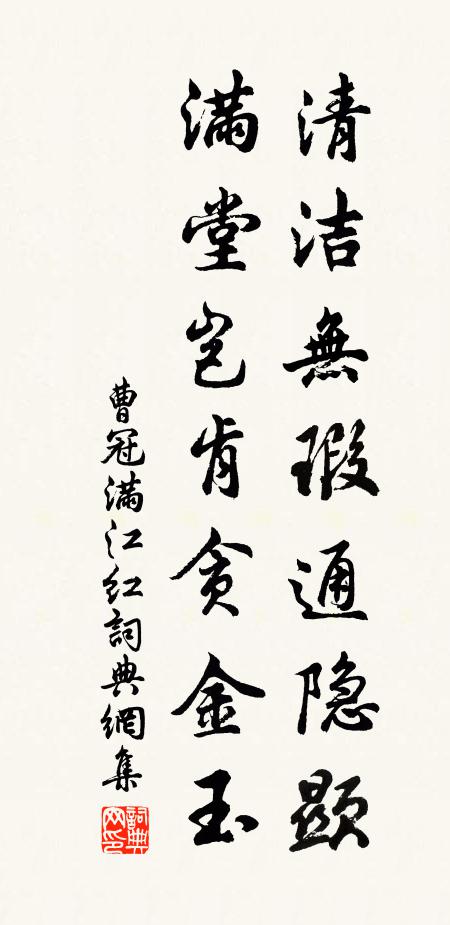 清洁無瑕通隐顯
满堂岂肯贪金玉
曹冠满江红詞典網集
詞典網印